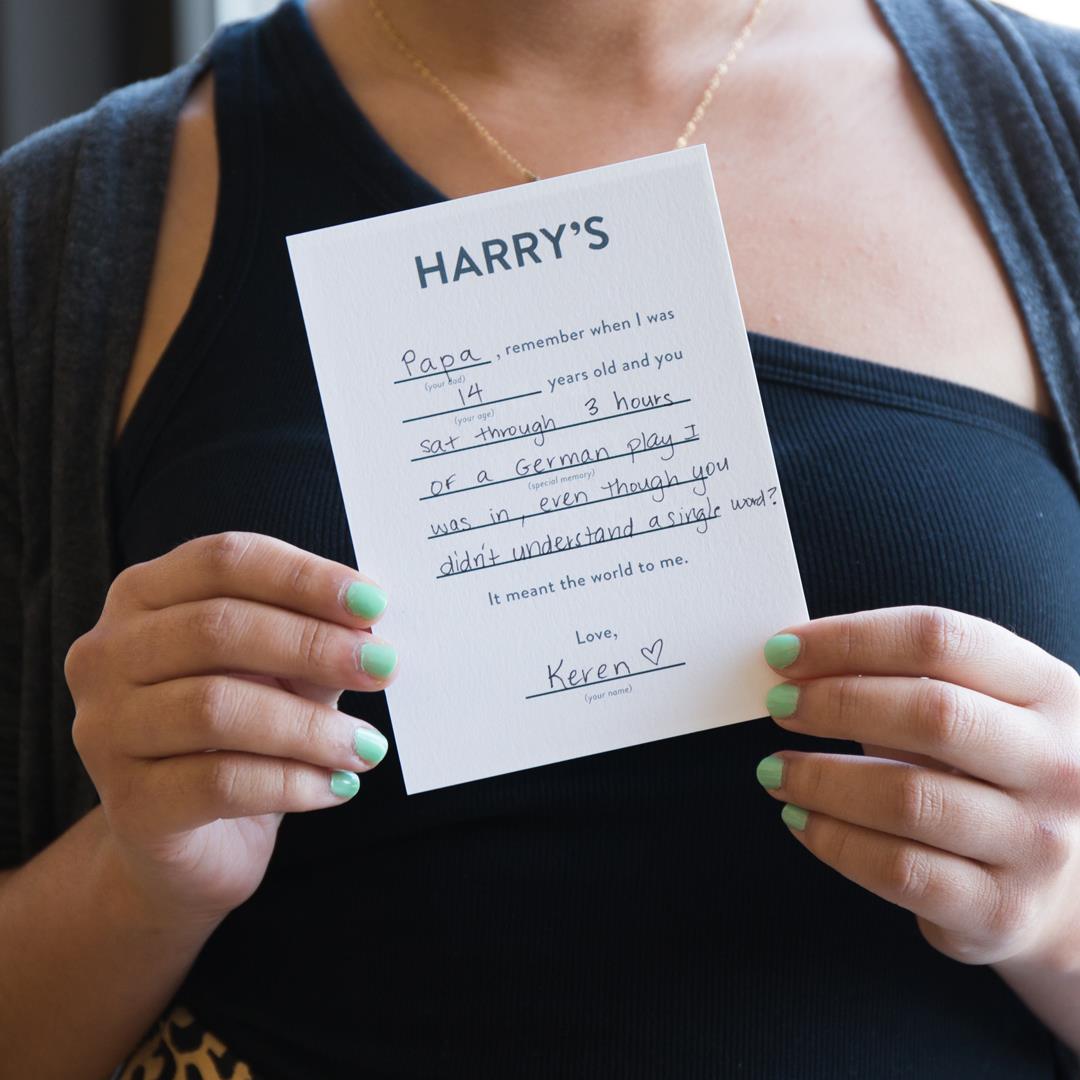 HARRY'S
Papa, remember when I was
(your dad)
14 years old and you
(your age)
sat through 3 hours
of a German play I
(special memory)
was in, even though you
didn't understand a single word?
It meant the world to me.
Love,
Keren ♡
(your name)